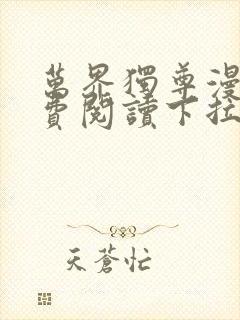 萬界獨尊漫
費閱讀下拉
天蒼忙